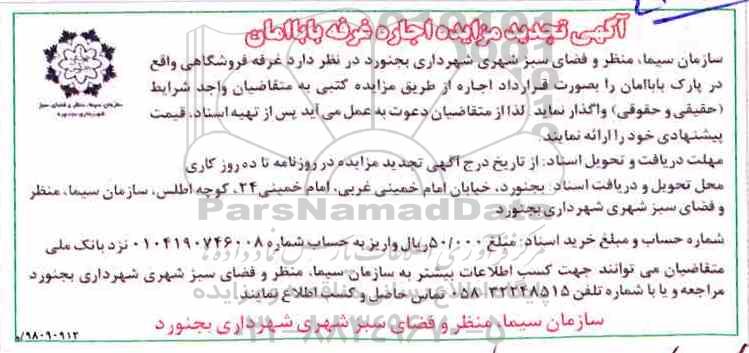 آگهی تجدید مزایده اجاره غرفه باباامان
سازمان سیما، منظر و فضای سبز شهری شهرداری بجنورد در نظر دارد غرفه فروشگاهی واقع
در پارک باباامان را بصورت قرارداد اجاره از طریق مزایده کتبی به متقاضیان واجد شرایط
(حقیقی و حقوقی) واگذار نماید. لذا از متقاضیان دعوت به عمل می آید پس از تهیه اسناد، قیمت
پیشنهادی خود را ارائه نمایند.
مهلت دریافت و تحویل اسناد: از تاریخ درج آگهی تجدید مزایده در روزنامه تا ده روز کاری
محل تحویل و دریافت اسناد: بجنورد، خیابان امام خمینی غربی، امام خمینی ۲۴، کوچه اطلس، سازمان سیما، منظر
و فضای سبز شهری شهرداری بجنورد
شماره حساب و مبلغ خرید اسناد: مبلغ ۵۰/۰۰۰ ریال واریز به حساب شماره ۰۱۰۴۱۹۰۷۴۶۰۰۸ نزد بانک ملی
متقاضیان می توانند جهت کسب اطلاعات بیشتر به سازمان سیما، منظر و فضای سبز شهری شهرداری بجنورد
مراجعه و یا با شماره تلفن ۳۲۲۴۸۵۱۵-۰۵۸ تماس حاصل و کسب اطلاع نمایند
سازمان سیما، منظر و فضای سبز شهری شهرداری بجنورد
۹۸۰۹۰۹۱۳/و
سازمان سیما، منظر و فضای سبز
شهرداری بجنورد
ParsNamadData
۰۲۱-۸۸۳۴۹۶۷۰-۵